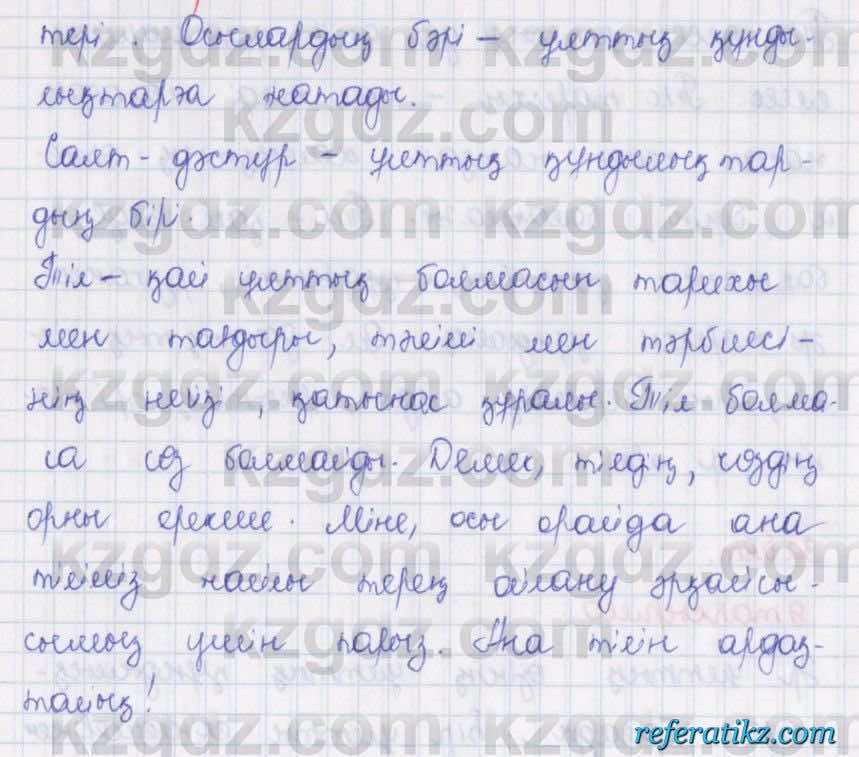 тері. Осылардың бәрі – ұлттық құнды-
лықтарға жатады.
Салт-дәстүр – ұлттық құндылықтар-
дың бірі.
Тіл – қай ұлттың болмасын тарихы
мен тағдыры, тәлімі мен тәрбиесі-
нің негізі, қатынас құралы. Тіл болма-
са сөз болмайды. Демек, тілдің, сөздің
орны ерекше. Міне, осы орайда ана
тіліміз жайлы терең ойлану әрқайсы-
сымыз үшін парыз. Ана тілін ардақ-
тайық!
kzgdz.com
referatikz.com